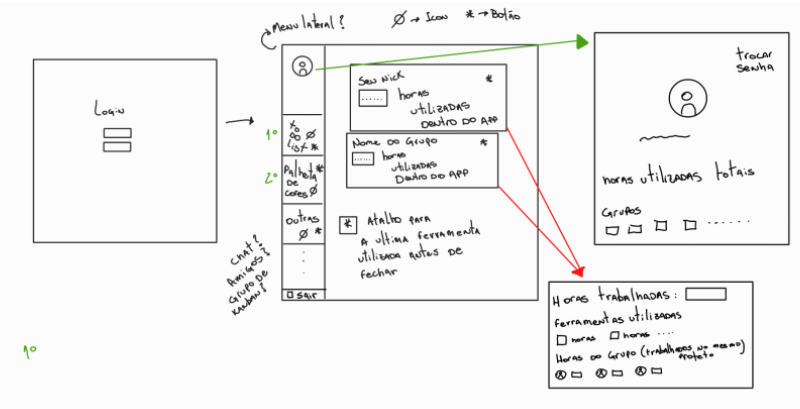 Menu lateral?
Ø → Icon * → Botão
Login
1º
To
Do Ø
List *
2º
Palheta *
De
cores Ø
Outras
Ø *
Sair
Chat?
Amigos?
Grupo de
Kanban?
Seu Nick *
...... horas
utilizadas
Dentro do APP
Nome do Grupo *
...... horas
utilizadas
Dentro do APP
* Atalho para
a ultima ferramenta
utilizada antes de
fechar
trocar
senha
horas utilizadas totais
Grupos
......
Horas trabalhadas:
ferramentas utilizadas
horas horas ....
Horas do Grupo (trabalhadas no mesmo
projeto)
1º